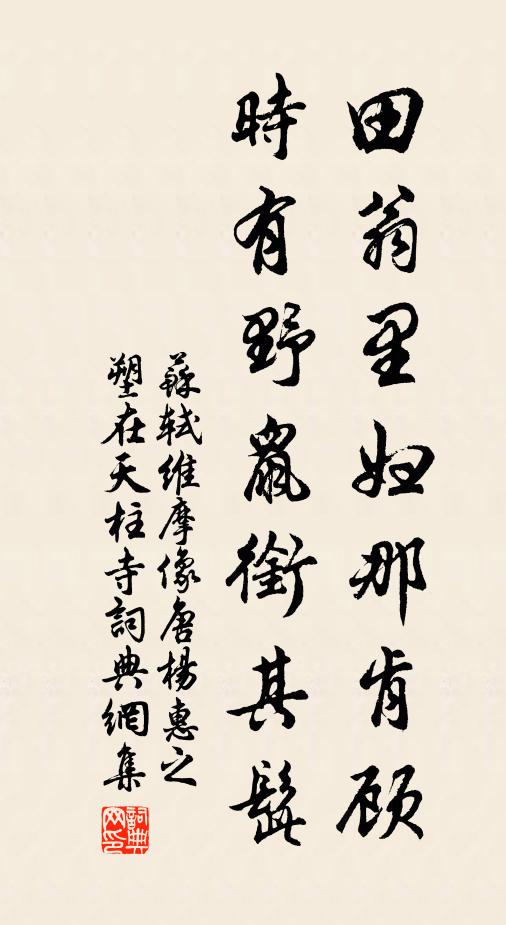 田翁里妇那肯顾
時有野鼠銜其髭
蘇軾維摩像唐楊惠之
塑在天柱寺詞典網集
詞典网印